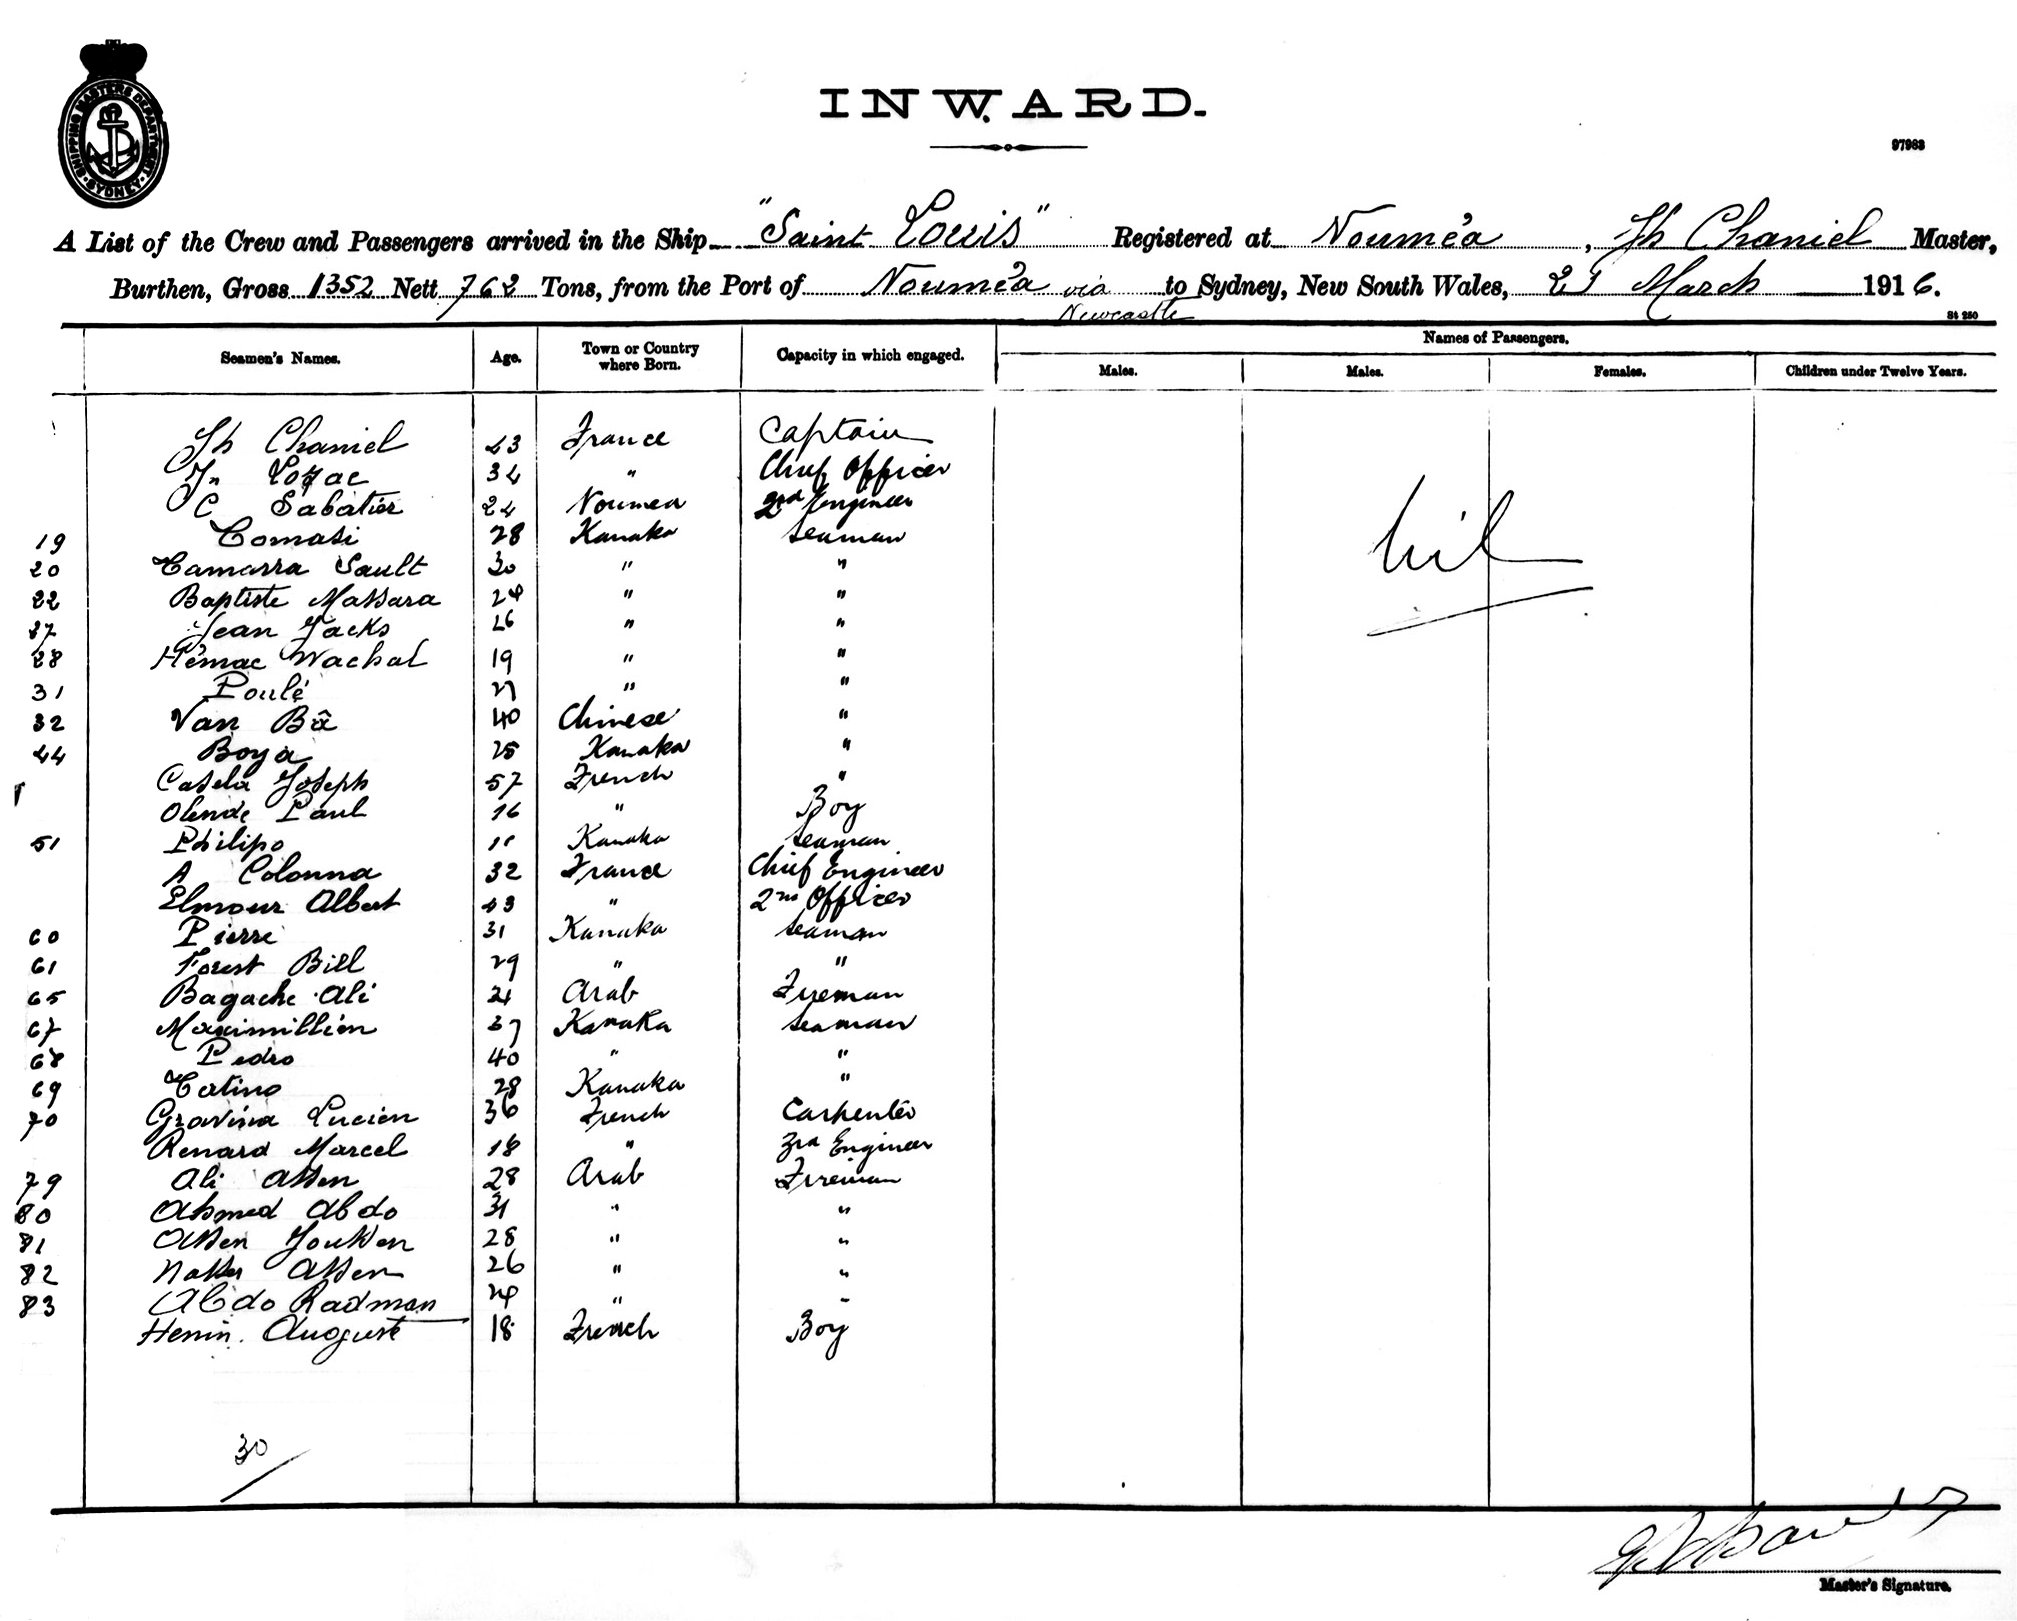 SHIPPING MASTERS DEPARTMENT SYDNEY
INWARD.
97963
A List of the Crew and Passengers arrived in the Ship "Saint Louis" Registered at Nouméa, Jh Chaniel Master,
Burthen, Gross 1352 Nett 762 Tons, from the Port of Nouméa via Newcastle to Sydney, New South Wales, March 1916.
St 250
Seamen's Names. Age. Town or Country where Born. Capacity in which engaged. Names of Passengers.
Males. Males. Females. Children under Twelve Years.
Jh Chaniel 43 France Captain
Lozac 34 " Chief Officer
C Sabatier 24 Noumea 2nd Engineer
19 Tomasi 28 Kanaka Seaman
nil
20 Camarra Sault 30 " "
22 Baptiste Massara 24 " "
27 Jean Jacks 26 " "
28 Hémac Wachal 19 " "
31 Poulé 27 " "
32 Van Bâ 40 Chinese "
44 Boya 25 Kanaka "
Casela Joseph 57 French "
Olende Paul 16 " Boy
51 Philipo Kanaka Seaman
A Colonna 32 France Chief Engineer
Elmour Albert 43 " 2nd Officer
60 Pierre 31 Kanaka Seaman
61 Forest Bill 29 " "
65 Bagache Ali 21 Arab Fireman
67 Maximillien 37 Kanaka Seaman
68 Pedro 40 " "
69 Tatino 28 Kanaka "
70 Gravina Lucien 36 French Carpenter
Renard Marcel 18 " 3rd Engineer
79 Ali Assen 28 Arab Fireman
80 Ahmed Abdo 31 " "
81 Assen Joussen 28 " "
82 Nasser Assen 26 " "
83 Abdo Radman 24 " "
Henin Auguste 18 French Boy
30
Master's Signature.